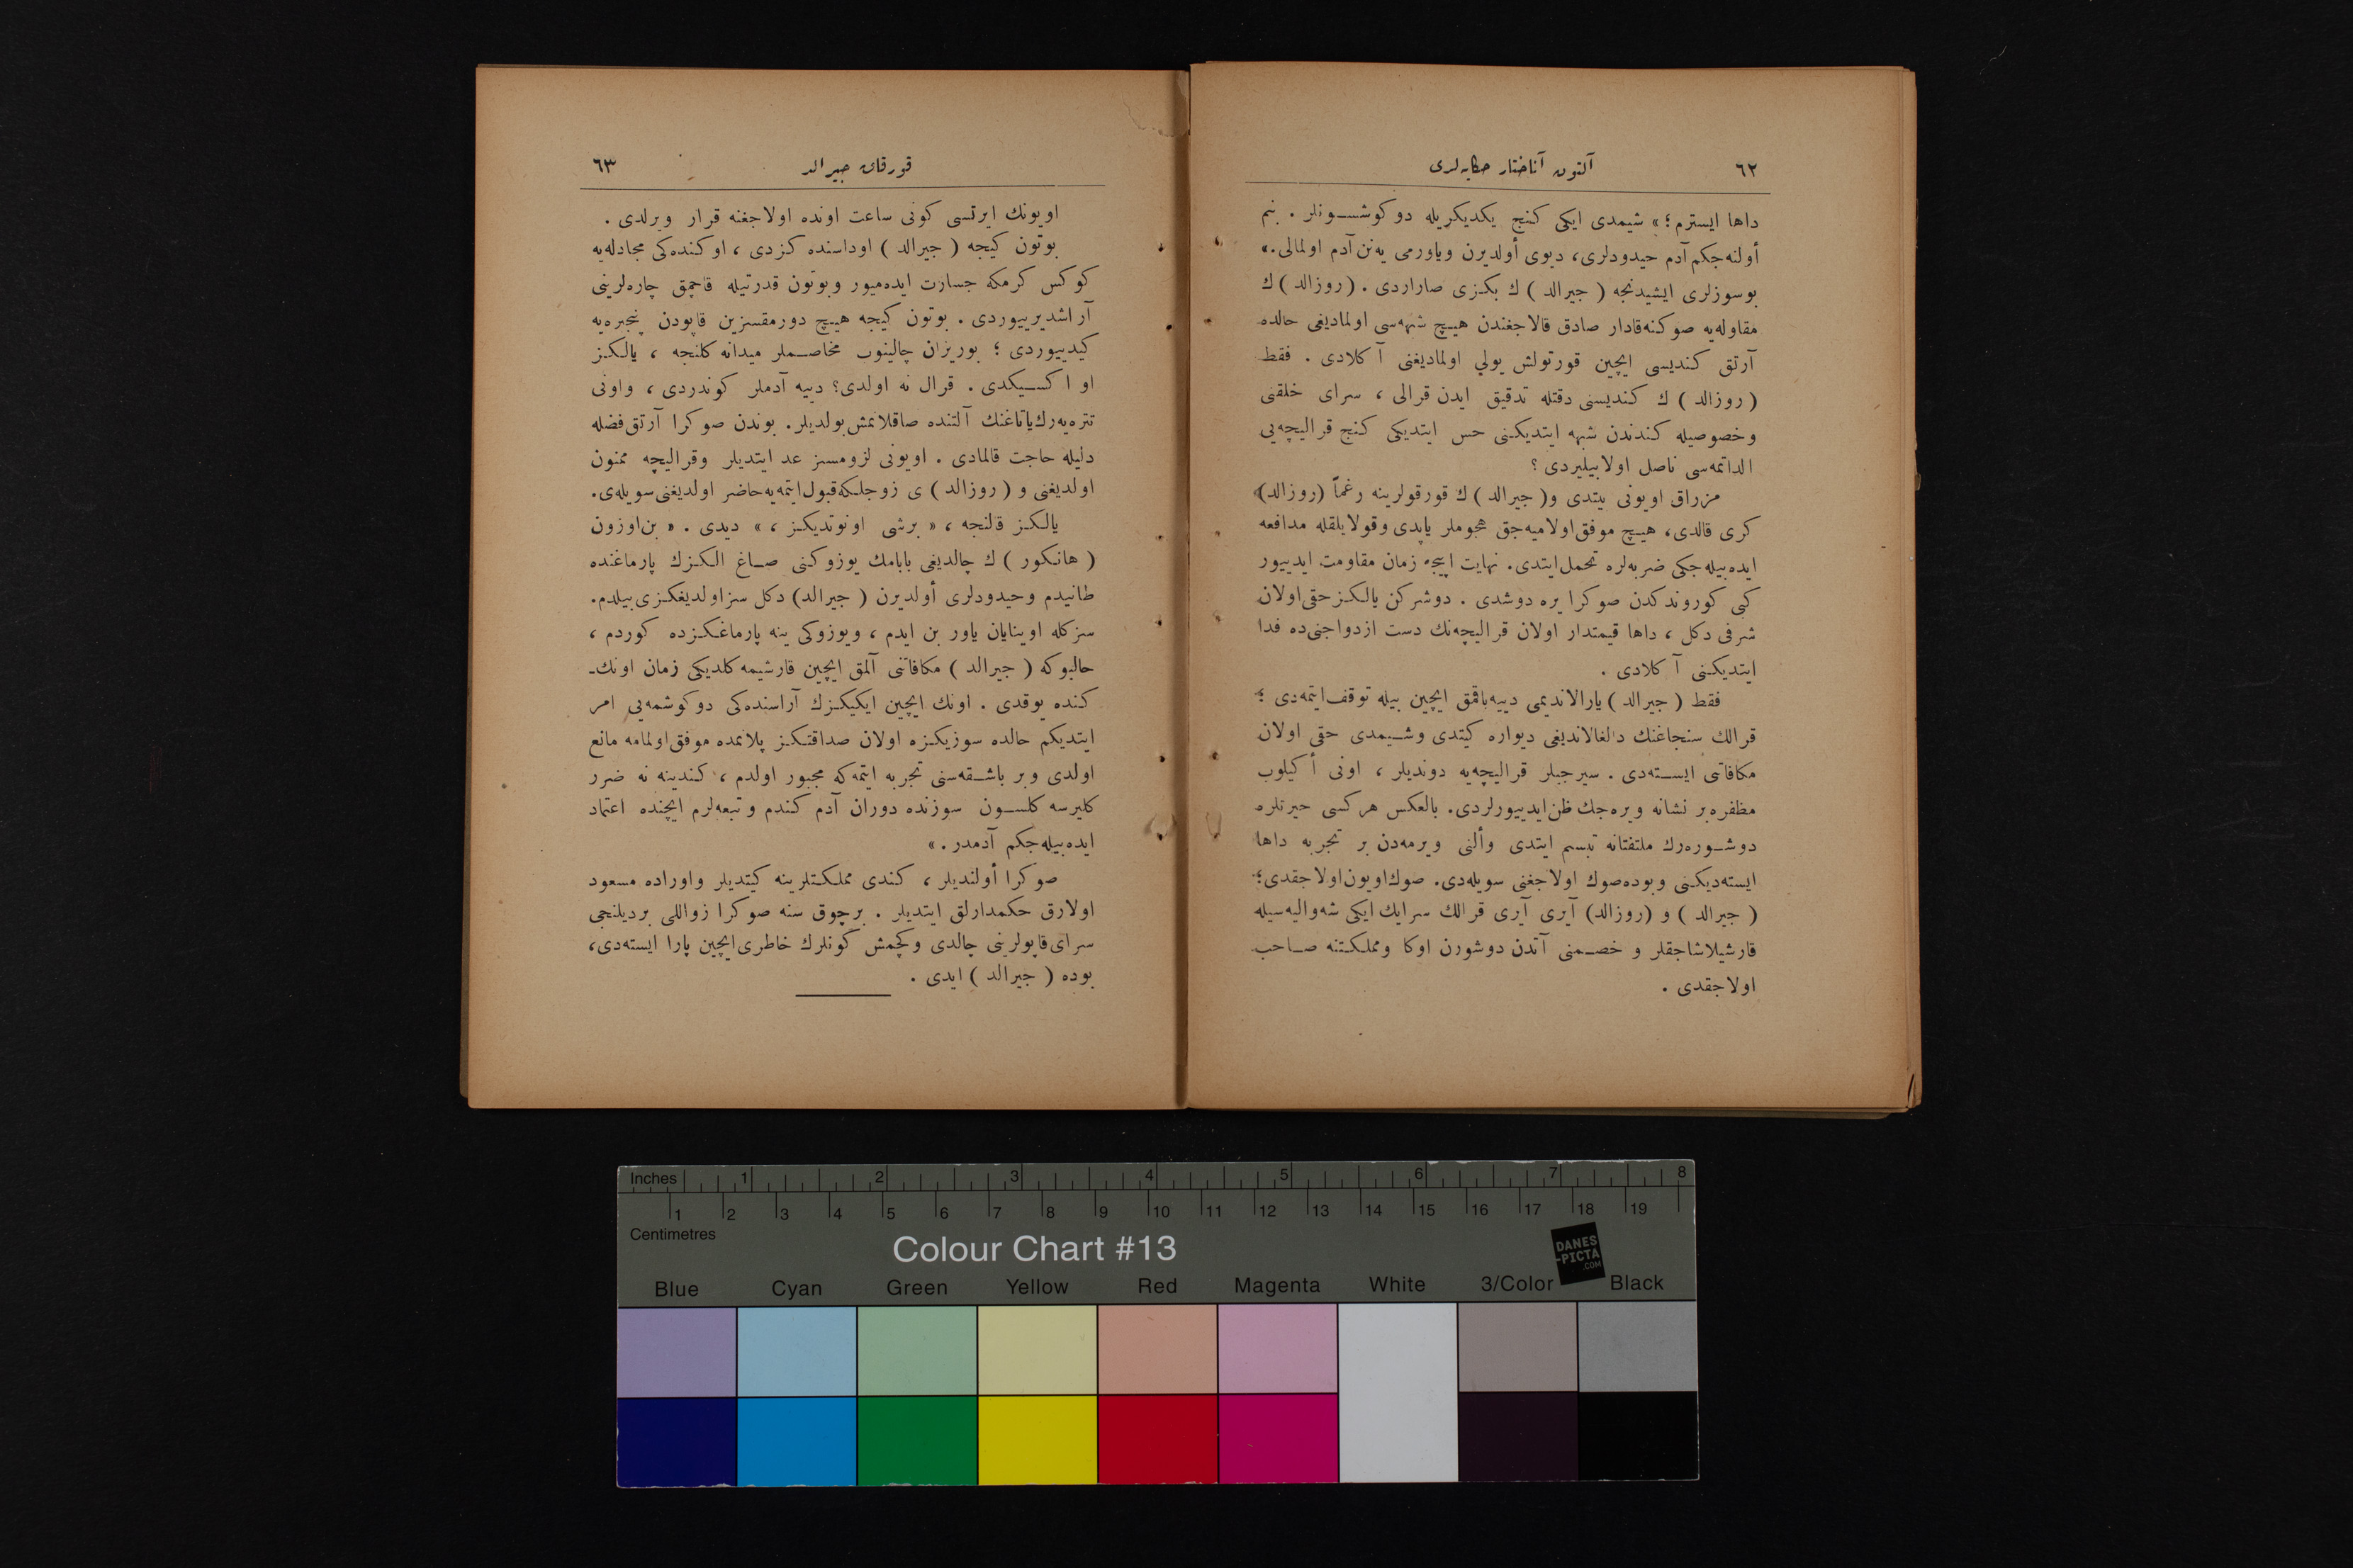 ٦٢
آلتون آناختار حكايه‌لری
داها ایسترم؛» شیمدی ایکی کنج یکدیکریله دوکوشسونلر . بنم
أولنه‌جکم آدم حیدودلری، دیوی أولدیرن ویاورمی یه‌نن آدم اولمالی.»
بوسوزلری ایشیدنجه ( جیرالد ) ك بکزی صاراردی . (روزالد) ك
مقاوله‌یه صوکنه‌قادار صادق قالاجغندن هیچ شبهه‌سی اولمادیغی حالده
آرتق کندیسی ایچین قورتولش یولي اولمادیغنی آکلادی . فقط
(روزالد ) ك کندیسنی دقتله تدقیق ایدن قرالی ، سرای خلقنی
وخصوصیله کندندن شبهه ایتدیکنی حس ایتدیکی کنج قرالیچه‌یی
الداتمه‌سی ناصل اولابیلیردی ؟
مزراق اویونی بیتدی و( جیرالد ) ك قورقولرینه رغماً (روزالد)
کری قالدی، هیچ موفق‌اولامیه‌جق هجوملر یاپدی وقولایلقله مدافعه
ایده‌بیله‌جکی ضربه‌لره تحمل‌ایتدی. نهایت ایپجه زمان مقاومت ایدییور
کبی کوروندکدن صوکرا یره دوشدی . دوشرکن یالکزحقی‌اولان
شرفی دکل ، داها قیمتدار اولان قرالیچه‌نك دست ازدواجنی‌ده فدا
ایتدیکنی آکلادی .
فقط ( جیرالد ) یارالاندیمی دییه‌باقمق ایچین بیله توقف‌ایتمه‌دی ؛
قرالك سنجاغنك دالغالاندیغی دیواره کیتدی وشیمدی حقی اولان
مکافاتی ایسته‌دی . سیرجیلر قرالیچه‌یه دوندیلر ، اونی أکیلوب
مظفره‌بر نشانه ویره‌جك ظن‌ایدییورلردی. بالعکس هرکسی حیرتلره
دوشوره‌رك ملتفتانه تبسم ایتدی وألنی ویرمه‌دن بر تجربه داها
ایسته‌دیکنی وبوده‌صوك اولاجغنی سویله‌دی. صوك‌اویون‌اولاجقدی؛
( جیرالد ) و (روزالد) آیری آیری قرالك سرایك ایکی شه‌والیه‌سیله
قارشیلاشاجقلر و خصمنی آتدن دوشورن اوکا ومملکتنه صاحب
اولاجقدی .
قورقاق جیرالد
٦٣
اویونك ایرتسی کونی ساعت اونده اولاجغنه قرار ویرلدی .
بوتون کیجه ( جیرالد ) اوداسنده کزدی ، اوکنده‌کی مجادله‌یه
کوکس کرمکه جسارت ایده‌میور وبوتون قدرتیله قاچمق چاره‌لرینی
آراشدیرییوردی . بوتون کیجه هیچ دورمقسزین قاپودن پنجره‌یه
کیدییوردی ؛ بوریزان چالینوب مخاصملر میدانه کلنجه ، یالکز
او اکسیکدی . قرال نه اولدی؟ دییه آدملر کوندردی ، واونی
تتره‌یه‌رك‌یاتاغنك آلتنده صاقلانمش‌بولدیلر. بوندن صوکرا آرتق‌فضله
دلیله حاجت قالمادی . اویونی لزومسز عد ایتدیلر وقرالیچه ممنون
اولدیغنی و (روزالد ) ی زوجلکه‌قبول‌ایتمه‌یه‌حاضر اولدیغنی‌سویله‌دی.
یالکز قالنجه ، « برشی اونوتدیکز ، » دیدی . « بن‌اوزون
( هانکور ) ك چالدیغی بابامك یوزوکنی صاغ الکزك پارماغنده
طانیدم وحیدودلری أولدیرن ( جیرالد) دکل سزاولدیغکزی‌بیلدم.
سزکله اوینایان یاور بن ایدم ، ویوزوکی ینه پارماغکزده کوردم ،
حالبوکه ( جیرالد ) مکافاتنی آلمق ایچین قارشیمه‌کلدیکی زمان اونك‌ـ
کنده یوقدی . اونك ایچین ایکیکزك آراسنده‌کی دوکوشمه‌یی امر
ایتدیکم حالده سوزیکزه اولان صداقتکز پلانمده موفق‌اولمامه مانع
اولدی وبر باشقه‌سنی تجربه ایتمه‌که مجبور اولدم ، کندینه نه ضرر
کلیرسه کلسون سوزنده دوران آدم کندم وتبعه‌لرم ایچنده اعتماد
ایده‌بیله‌جکم آدمدر . »
صوکرا أولندیلر ، کندی مملکتلرینه کیتدیلر واوراده مسعود
اولارق حکمدارلق ایتدیلر . برچوق سنه صوکرا زواللی بردیلنجی
سرای‌قاپولرینی چالدی وکچمش کونلرك خاطری‌ایچین پارا ایسته‌دی،
بوده ( جیرالد ) ایدی .
Inches 1 2 3 4 5 6 7 8
1 2 3 4 5 6 7 8 9 10 11 12 13 14 15 16 17 18 19
Centimetres
Colour Chart #13
DANES
-PICTA
.COM
Blue Cyan Green Yellow Red Magenta White 3/Color Black